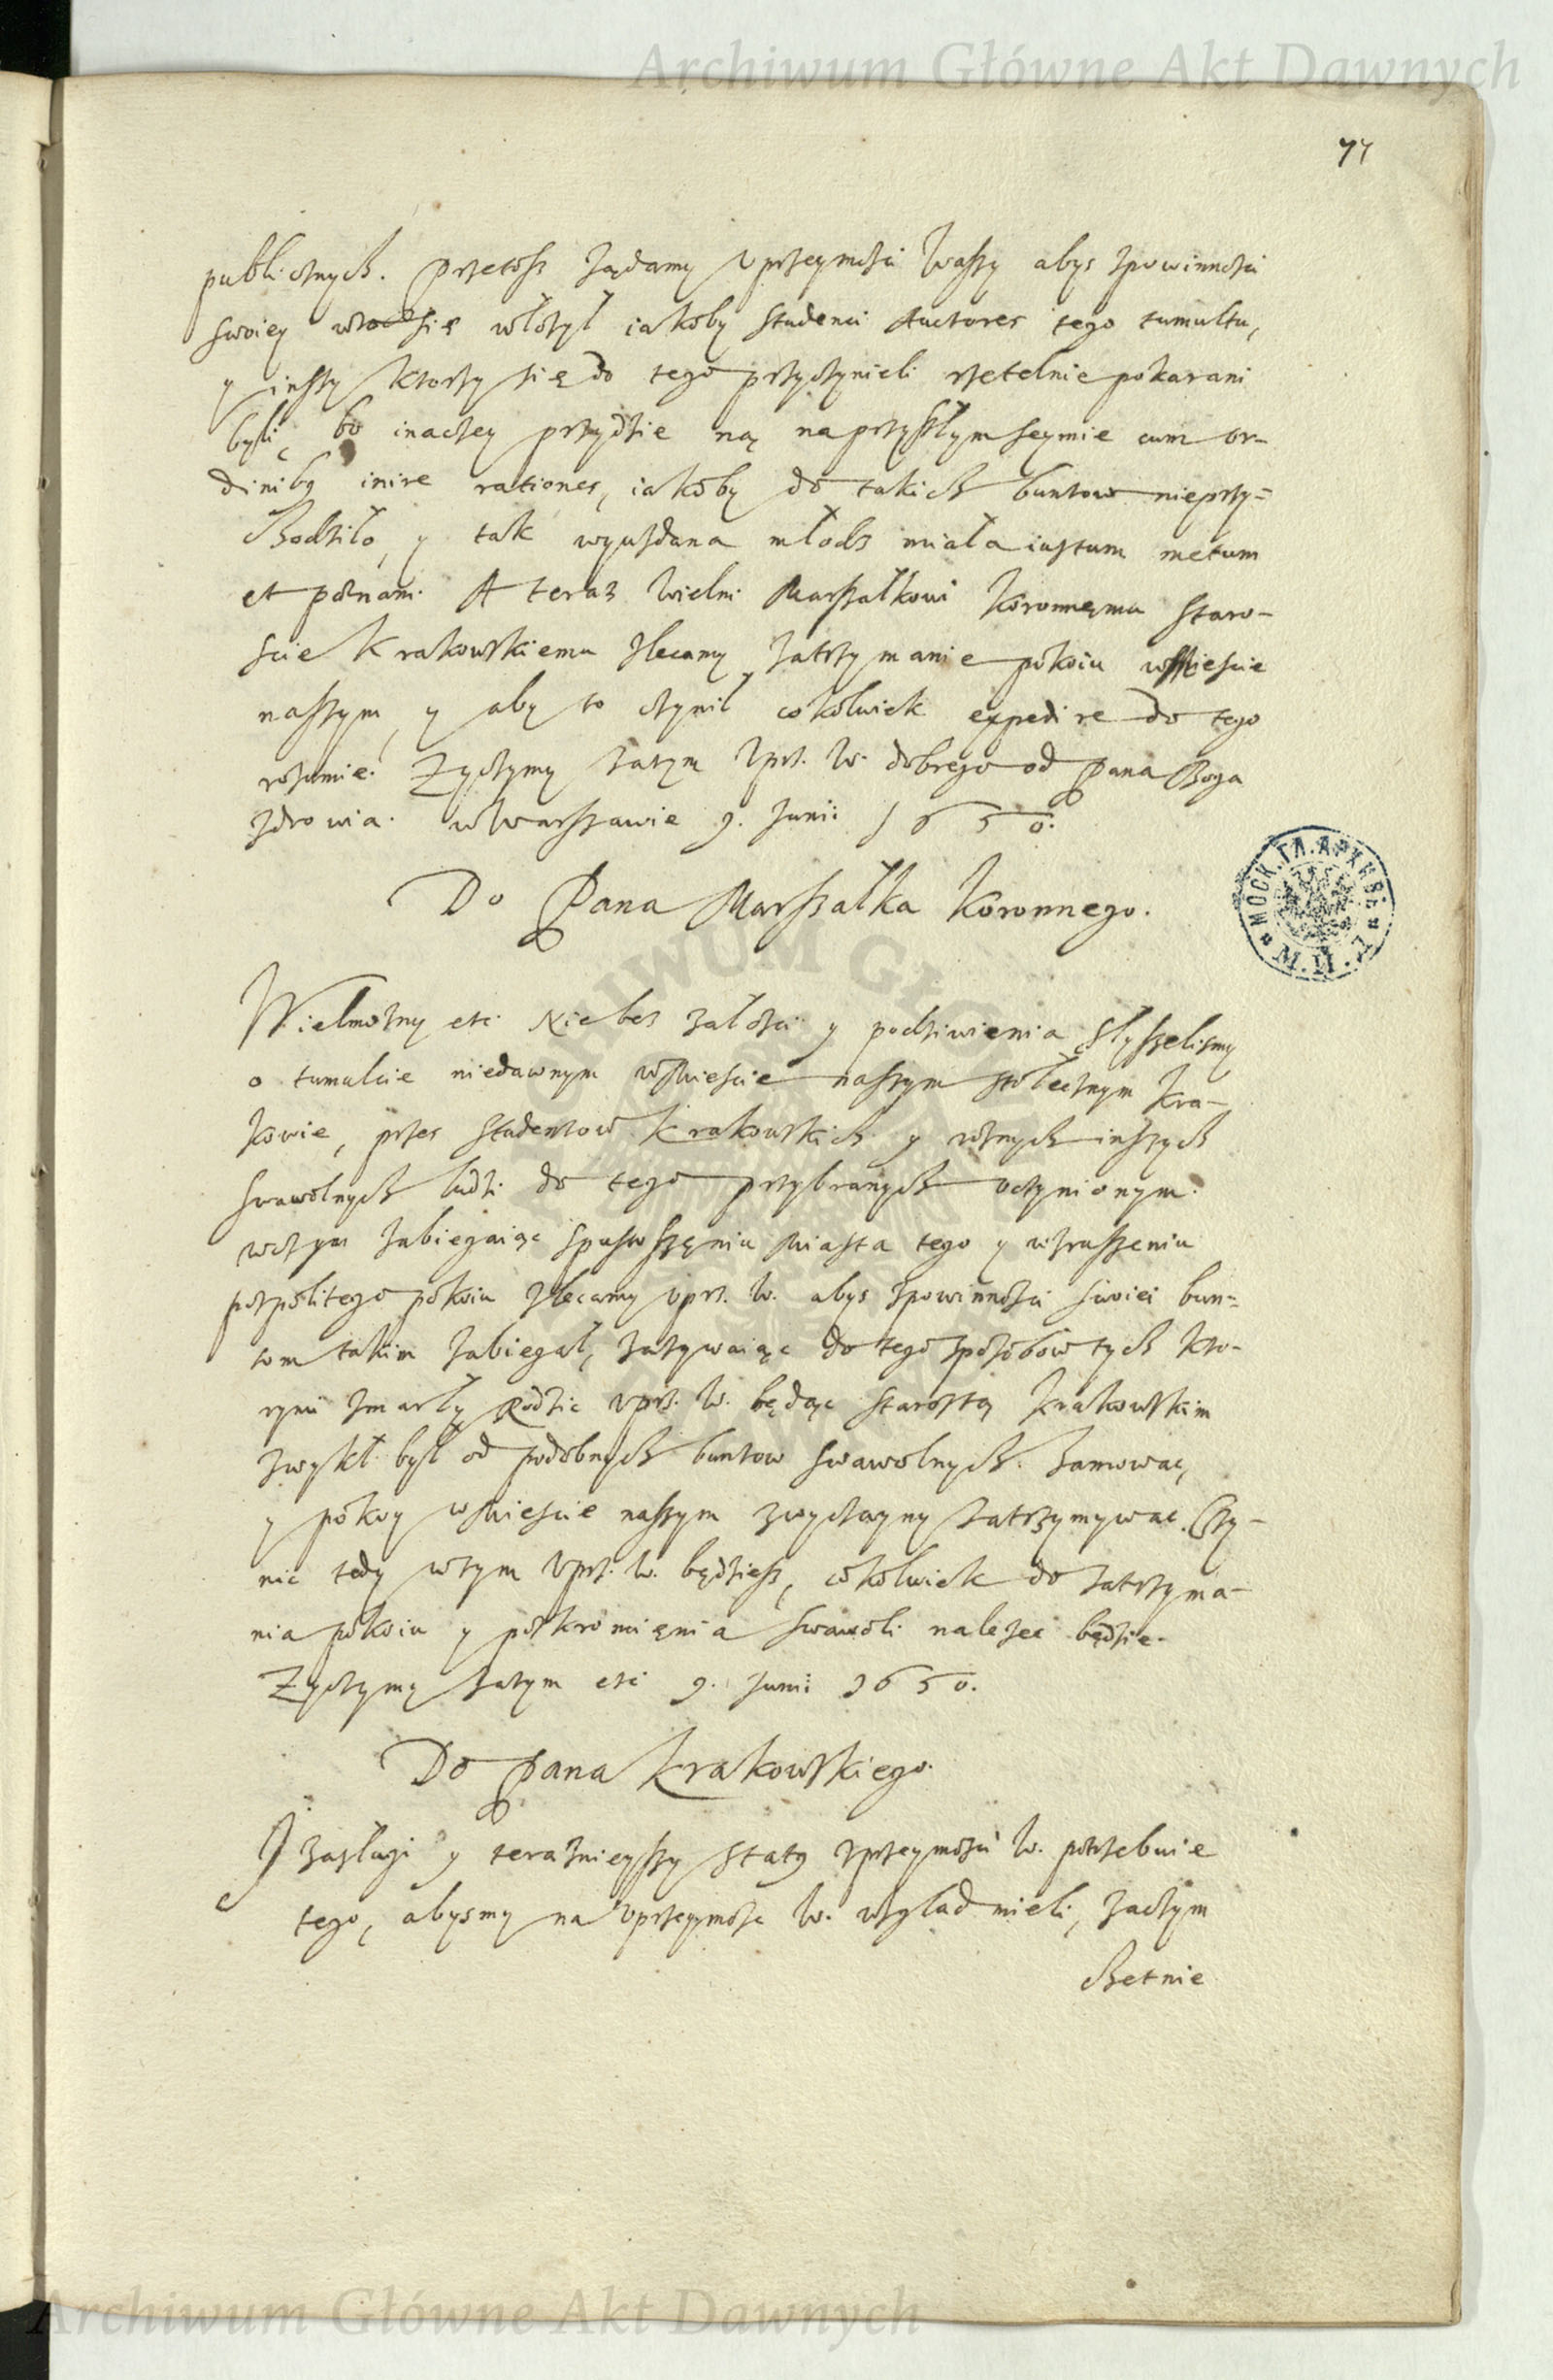 Archiwum Główne Akt Dawnych
77
publicznych. Przetosz żądamy Uprzeymości Waszy abyś z powinności
swoiey w to się włożył iakoby studenci Auctores tego tumultu,
y inszy ktorzy się do tego przyczynieli rzetelnie pokarani
byli, bo inaczey przydzie ną na przyszłym seymie cum or-
dinibus inire rationes, iakoby do takich buntow nieprzy-
chodziło, y tak wyuzdana młodz miała iustum metum
et pœnam. A teraz Wielm. Marszałkowi Koronnęmu Staro-
ście Krakowskiemu zlecamy zatrzymanie pokoiu w Mieście
naszym, y aby to czynił cokolwiek expedire do tego
rozumie. Życzymy zatym Uprz. W. dobrego od Pana Boga
zdrowia. w Warszawie 9. Junii 1650.
Do Pana Marszałka Koronnego.
Wielmożny etc. Nie bez żałości y podziwienia słyszelismy
o tumulcie niedawnym w Mieście naszym stołecznym Kra-
kowie, przez studentow Krakowskich y roznych inszych
swawolnych ludzi do tego przybranych uczynionym.
w czym zabiegaiąc spustoszęniu Miasta tego y wzruszeniu
pospolitego pokoiu zlecamy Uprz. W. abyś z powinności swoiei bun-
tom takim zabiegał, zażywaiąc do tego sposobow tych kto-
rymi zmarły Rodzic Uprz. W. będąc Starostą Krakowskim
zwykł był od podobnych buntow swawolnych hamować,
y pokoy w Mieście naszym zwyczayny zatrzymywać. Czy-
nić tedy w tym Uprz. W. będziesz, cokolwiek do zatrzyma-
nia pokoiu y poskromięnia swawoli należeć będzie.
Życzymy zatym etc. 9. Junii 1650.
Do Pana Krakowskiego.
Y zasługi y teraznieyszy status Uprzeymości W. potrzebuie
tego, abysmy na Uprzeymość W. wzgląd mieli, zaczym
chętnie
МОСК.ГЛ.АРХИВЪ М.И.Д.
Archiwum Główne Akt Dawnych